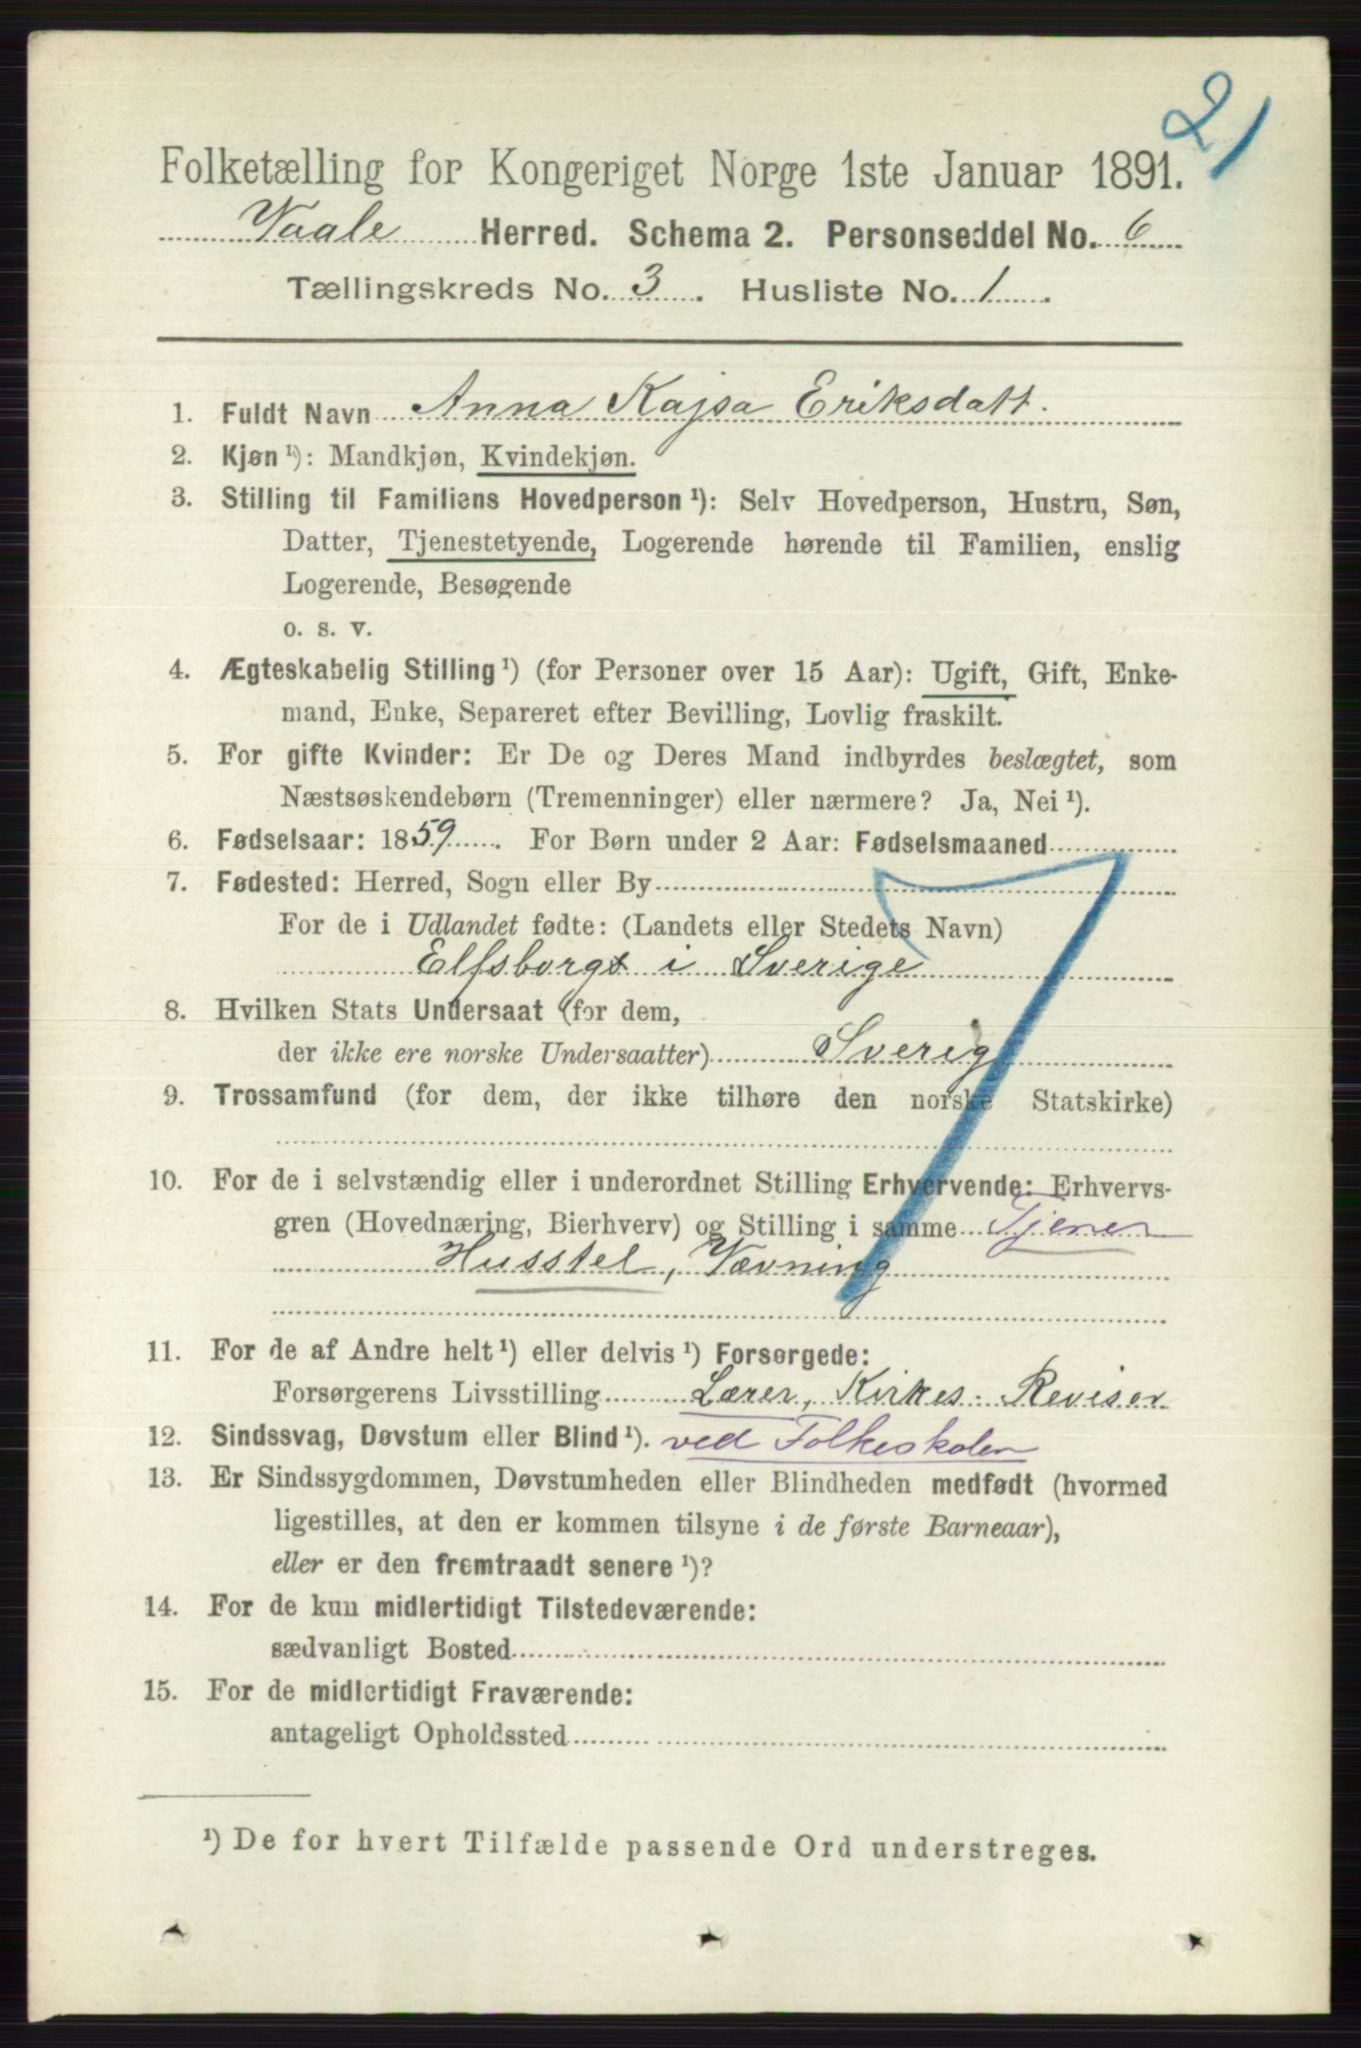 21
Folketælling for Kongeriget Norge 1ste Januar 1891.
Vaale Herred. Schema 2. Personseddel No. 6
Tællingskreds No. 3. Husliste No. 1.
1. Fuldt Navn Anna Kajsa Eriksdatt.
2. Kjøn ¹): Mandkjøn, Kvindekjøn.
3. Stilling til Familiens Hovedperson ¹): Selv Hovedperson, Hustru, Søn,
Datter, Tjenestetyende, Logerende hørende til Familien, enslig
Logerende, Besøgende
o. s. v.
4. Ægteskabelig Stilling ¹) (for Personer over 15 Aar): Ugift, Gift, Enke-
mand, Enke, Separeret efter Bevilling, Lovlig fraskilt.
5. For gifte Kvinder: Er De og Deres Mand indbyrdes beslægtet, som
Næstsøskendebørn (Tremenninger) eller nærmere? Ja, Nei ¹).
6. Fødselsaar: 1859. For Børn under 2 Aar: Fødselsmaaned
7. Fødested: Herred, Sogn eller By
For de i Udlandet fødte: (Landets eller Stedets Navn)
Elfsborgs i Sverige
8. Hvilken Stats Undersaat (for dem,
der ikke ere norske Undersaatter) Sverig
9. Trossamfund (for dem, der ikke tilhøre den norske Statskirke)
10. For de i selvstændig eller i underordnet Stilling Erhvervende: Erhvervs-
gren (Hovednæring, Bierhverv) og Stilling i samme Tjener
Husstel, Vævning
11. For de af Andre helt ¹) eller delvis ¹) Forsørgede:
Forsørgerens Livsstilling Lærer, Kirkes. Revisor
12. Sindssvag, Døvstum eller Blind ¹). ved Folkeskolen
13. Er Sindssygdommen, Døvstumheden eller Blindheden medfødt (hvormed
ligestilles, at den er kommen tilsyne i de første Barneaar),
eller er den fremtraadt senere ¹)?
14. For de kun midlertidigt Tilstedeværende:
sædvanligt Bosted
15. For de midlertidigt Fraværende:
antageligt Opholdssted
¹) De for hvert Tilfælde passende Ord understreges.